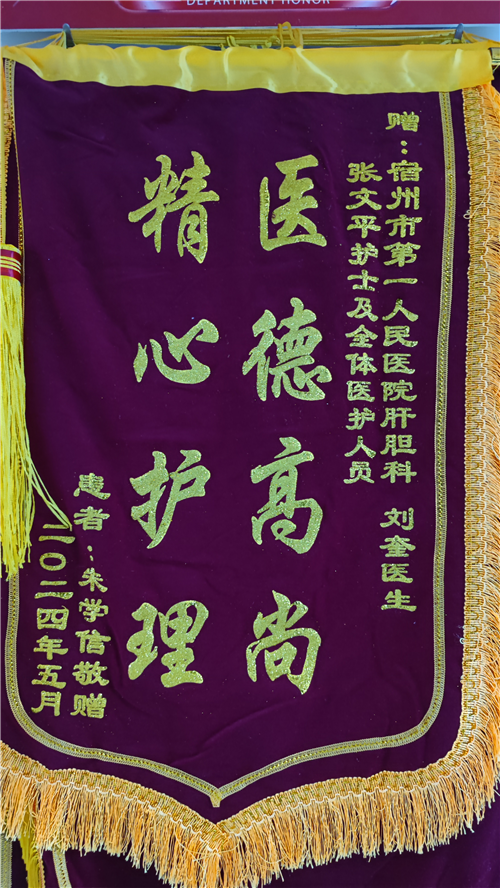 DEPARTMENT HONOR
赠：宿州市第一人民医院肝胆科 刘奎医生
张文平护士及全体医护人员
医德高尚
精心护理
患者：朱学信敬赠
二〇二四年五月